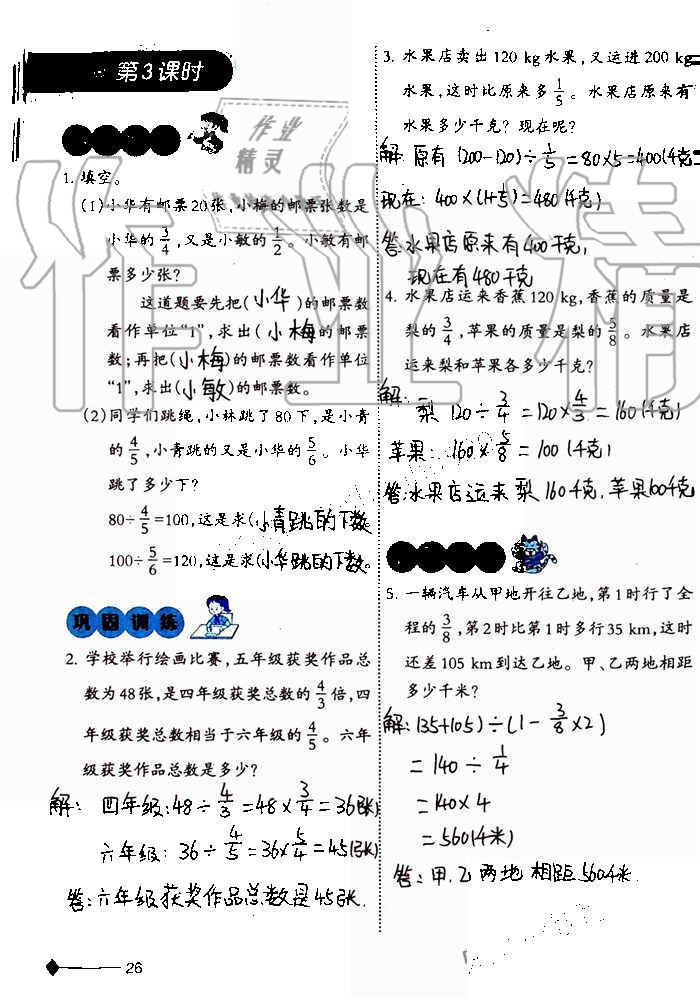 第3课时
1. 填空。
(1)小华有邮票20张,小梅的邮票张数是
小华的3/4,又是小敏的1/2。小敏有邮
票多少张?
这道题要先把(小华)的邮票数
看作单位“1”,求出(小梅)的邮票
数;再把(小梅)的邮票数看作单位
“1”,求出(小敏)的邮票数。
(2)同学们跳绳,小林跳了80下,是小青
的4/5,小青跳的又是小华的5/6。小华
跳了多少下?
80÷4/5=100,这是求(小青跳的下数
100÷5/6=120,这是求(小华跳的下数。
巩固训练
2. 学校举行绘画比赛,五年级获奖作品总
数为48张,是四年级获奖总数的4/3倍,四
年级获奖总数相当于六年级的4/5。六年
级获奖作品总数是多少?
解: 四年级:48÷4/3=48×3/4=36(张)
六年级:36÷4/5=36×5/4=45(张)
答:六年级获奖作品总数是45张.
26
3. 水果店卖出120 kg水果,又运进200 kg
水果,这时比原来多1/5。水果店原来有
水果多少千克?现在呢?
解:原有 (200-120)÷1/5=80×5=400(千克
现在: 400×(1+1/5)=480(千克)
答:水果店原来有400千克,
现在有480千克
4. 水果店运来香蕉120 kg,香蕉的质量是
梨的3/4,苹果的质量是梨的5/8。水果店
运来梨和苹果各多少千克?
解: 梨 120÷3/4=120×4/3=160(千克)
苹果: 160×5/8=100(千克)
答:水果店运来梨160千克,苹果100千克
5. 一辆汽车从甲地开往乙地,第1时行了全
程的3/8,第2时比第1时多行35 km,这时
还差105 km到达乙地。甲、乙两地相距
多少千米?
解:(35+105)÷(1-3/8×2)
=140÷1/4
=140×4
=560(千米)
答:甲.乙两地相距560千米.
作业精灵
作业精